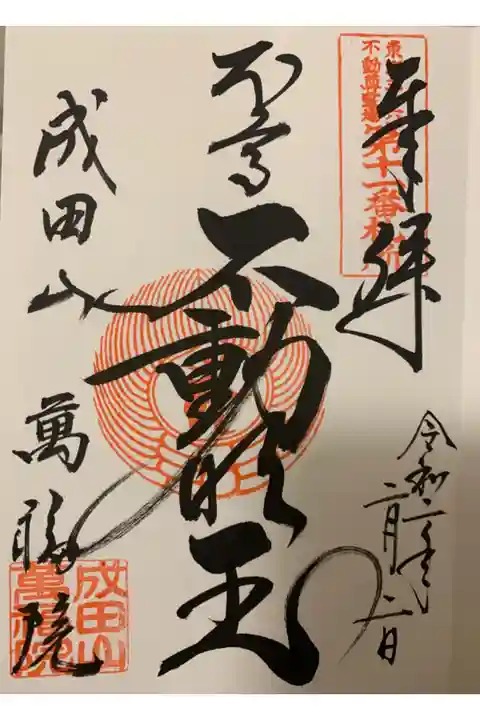 奉拝
令和二年
二月二日
不動明王
成田山
萬福院
第十一番札所
成田山
萬福院